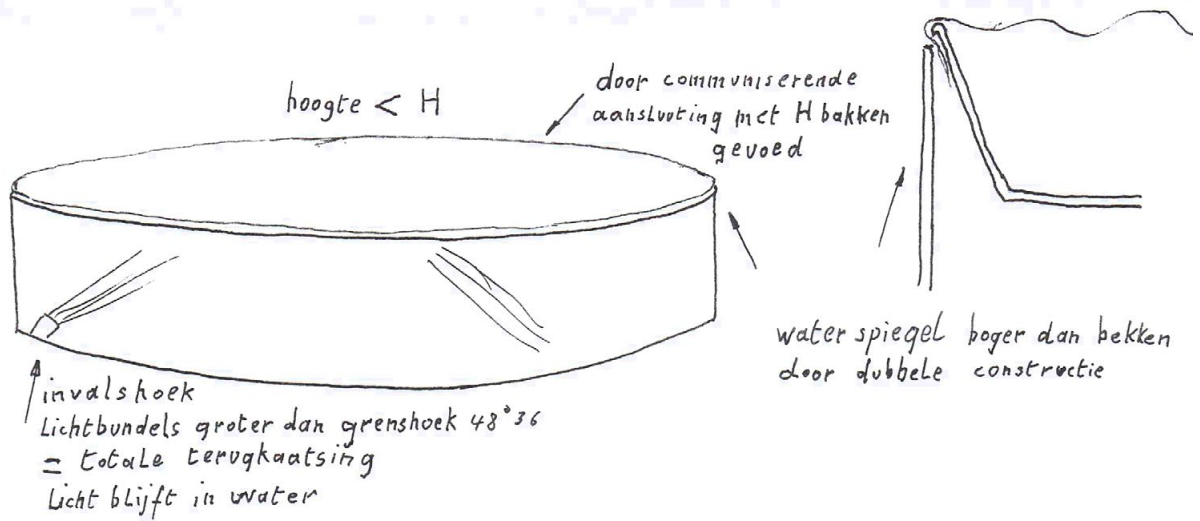 hoogte < H
door communiserende
aansluiting met H bakken
gevoed
water spiegel hoger dan bekken
door dubbele constructie
invalshoek
Lichtbundels groter dan grenshoek 48°36
= totale terugkaatsing
Licht blijft in water